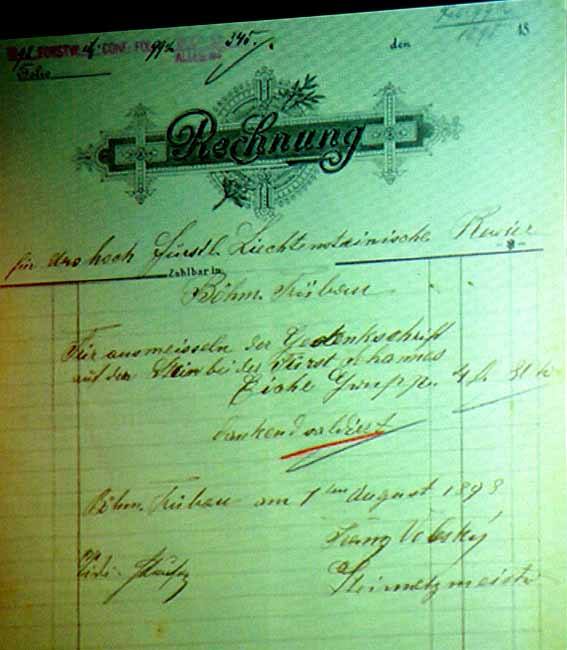 FORSTVR CONF. FOL 99½ 345.
ALLEG. No
Folio
den 18
Rechnung
für das hoch fürstl. Liechtensteinische Revier
Zahlbar in
Böhm. Trübau
Für ausmeisseln der Gedenkschrift
auf den Stein bei der Fürst Johannes
Eiche Gruppe 4 fl
Dankend saldiert
Böhm. Trübau am 1ten August 1898
Franz
Steinmetzmeister